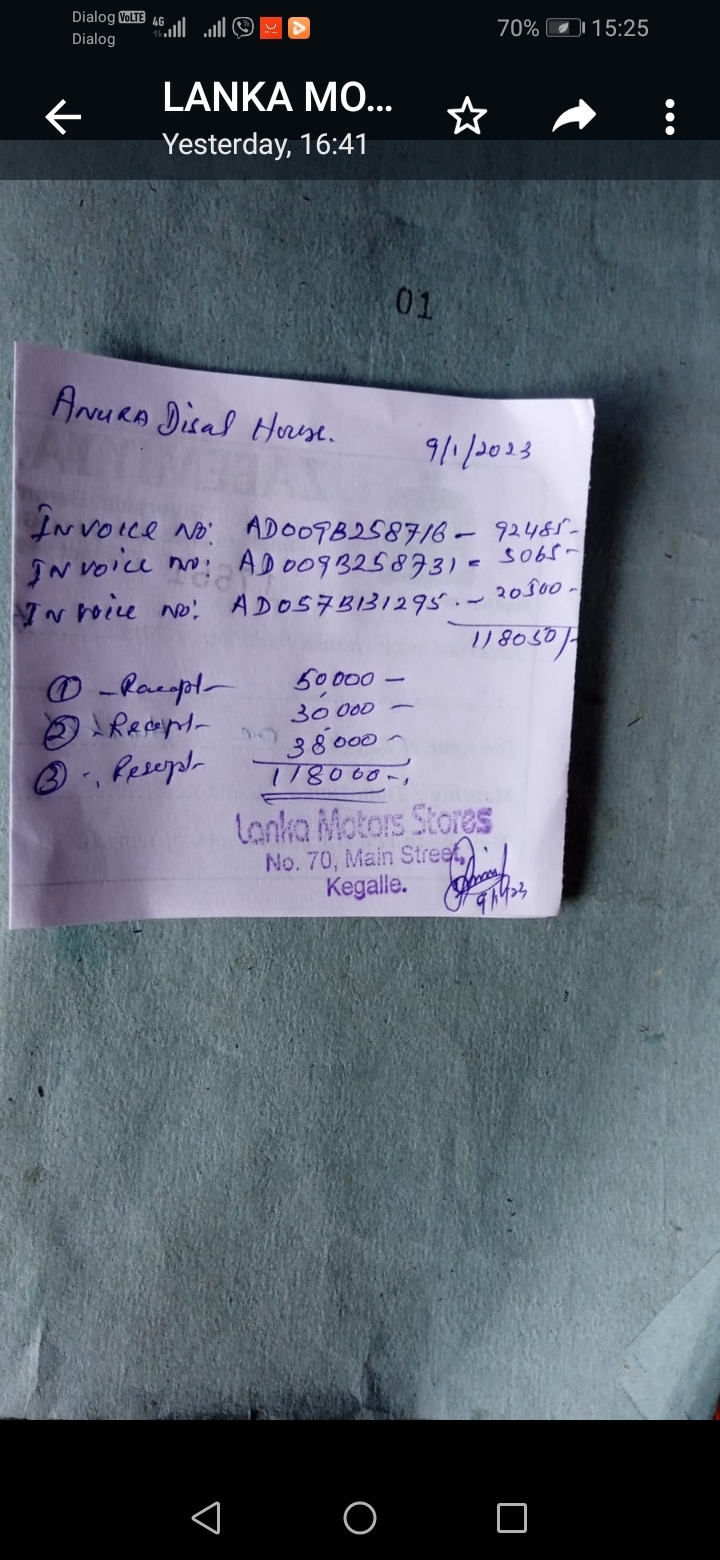 Dialog VoLTE 4G
Dialog
70% 15:25
LANKA MO...
Yesterday, 16:41
01
ANURA Disal House.
9/1/2023
Invoice No: AD009B258716 - 92485-
Invoice no: AD009B258731 = 5065-
Invoice no: AD057B131295 .- 20500-
118050/-
① - Recept- 50,000 -
② - Recept- 30,000 -
③ -, Recept- 38,000 -
118000-,
Lanka Motors Stores
No. 70, Main Street,
Kegalle.
9/1/23